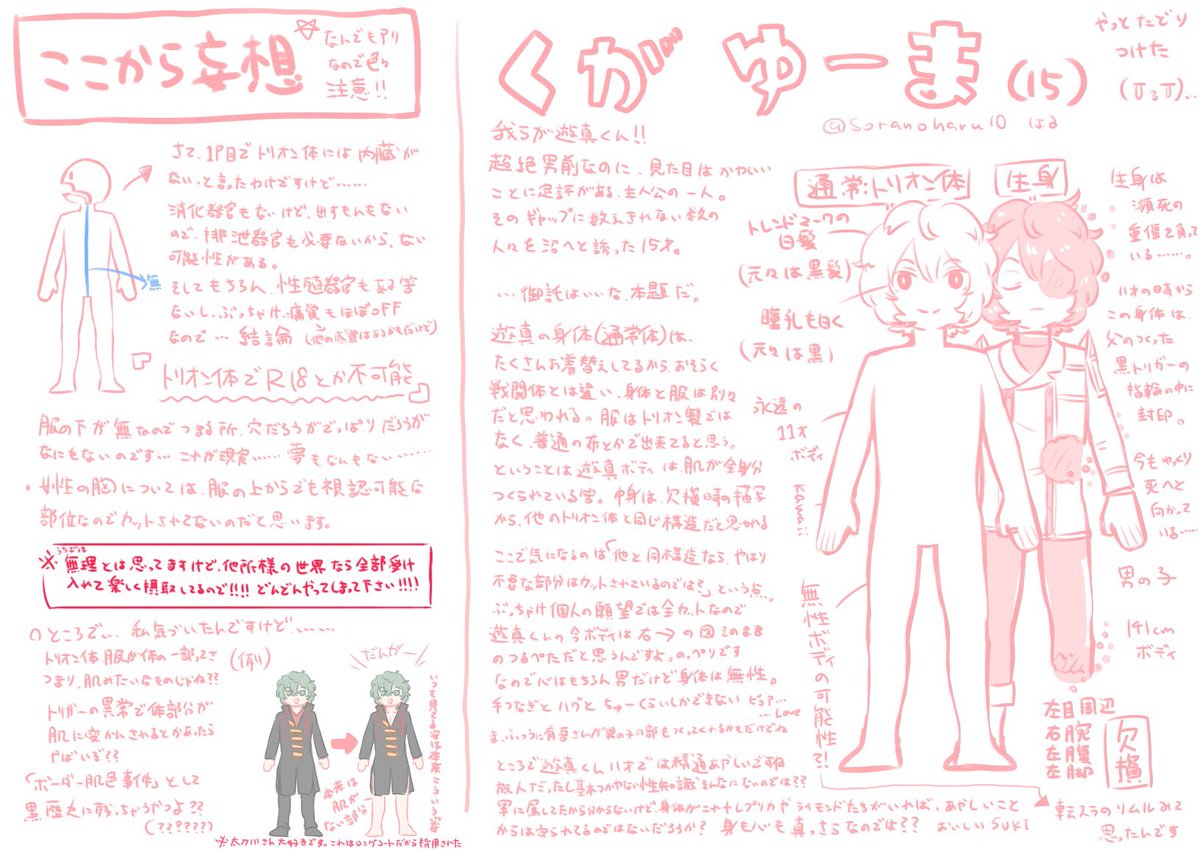 ここから妄想
なんでもアリ
なので色々
注意!!
さて、1P目でトリオン体には内臓が
ない。と言ったわけですけど……
消化器官もないけど、出すもんもない
ので、排泄器官も必要ないから、ない
可能性がある。
そしてもちろん、性殖器官もある筈
ないし、ぶっちゃけ痛覚もほぼOFF
なので… 結論
無
『トリオン体でR18とか不可能』
服の下が無なのでつまる所、穴だろうがでっぱりだろうが
なにもないのです… これが現実…… 夢もなんもない……
・女性の胸については、服の上からでも視認可能な
部位なのでカットされてないのだと思います。
うちでは
※無理とは思ってますけど、他所様の世界なら全部受け
入れて楽しく摂取してるので!!!! どんどんやってしまって下さい!!!!
○ところでぃ、私気づいたんですけど……
トリオン体服が体の一部ってさ
つまり、肌みたいなものじゃね??
トリガーの異常で体部分が
肌に変かんされるとかあったら
やばいぞ??
「ボーダー肌色事件」として
黒歴史に残っちゃうやつよ??
(??????)
(例)
だんがー
いつも見てる姿は本来こういう姿
本来は
肌が
ない部分
※太刀川さん大好きです。これはロングコートだから採用された
くが ゆーま (15)
やっとたどり
つけた
@soranoharu10 はる
我らが遊真くん!!
超絶男前なのに、見た目はかわいい
ことに定評がある、主人公の一人。
そのギャップに数えきれない数の
人々を沼へと誘った15才。
…御託はいいな、本題だ。
遊真の身体(通常体)は、
たくさんお着替えしてるから、おそらく
戦闘体とは違い、身体と服は別々
だと思われる。服はトリオン製では
なく、普通の布とかで出来てると思う。
ということは遊真ボディは、肌が全身分
つくられている筈。中身は、欠損時の描写
から、他のトリオン体と同じ構造だと思われる
ここで気になるのは「他と同構造なら、やはり
不要な部分はカットされているのでは?」という点。
ぶっちゃけ個人の願望では全カットなので
遊真くんの今ボディは右→の図このまま
のつるぺただと思うんですよ。の。ぺりです
なので心はもちろん男だけど身体は無性。
手つなぎとハグとちゅーくらいしかできない ピュア…
…Love
ま、ふつうに有吾さんが男の子の部もつくってくれるかもだけどね
ところで遊真くん11才では精通あやしいですね
旅人でだったし基本つかない性知識もそんなにないのでは??
軍に属してたから分からないけど、身体がこれ+レプリカやライモンドたちがいれば、あやしいこと
からは守られてるのではないだろうか? 身も心も真っさらなのでは?? おいしい SUKI
通常:トリオン体
生身
トレンドマークの
白髪
(元々は黒髪)
瞳孔も白く
(元々は黒)
永遠の
11才
ボディ
kawaii
無性ボディの可能性?!
生身は
瀕死の
重傷を負って
いる……。
11才の時から
この身体は、
父のつくった
黒トリガーの
指輪の中に
封印。
今もゆっくり
死へと
向かって
いる……
男の子
141cm
ボディ
左目周辺
右腕
左腹
左脚
欠損
転スラのリムルみて
思ったんです